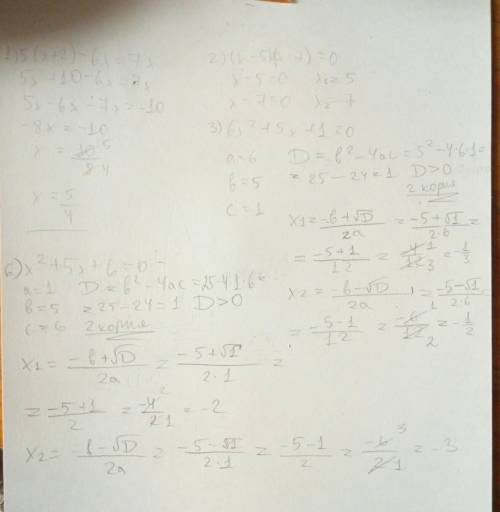 1) 5(x+2)-6x=7x
5x+10-6x=7x
5x-6x-7x=-10
-8x=-10
x = 10 5 / 8 4
x = 5/4
2) (x-5)(x-7)=0
x-5=0 x=5
x-7=0 x=7
3) 6x²+5x+1=0
a=6 D=b²-4ac=5²-4·6·1=
b=5 =25-24=1 D>0
c=1 2 корня
x1=(-b+√D)/2a=(-5+√1)/2·6=
=(-5+1)/12=-4 1/12 3=-1/3
x2=(-b-√D)/2a=(-5-√1)/2·6
=(-5-1)/12=-6 1/12 2=-1/2
6) x²+5x+6=0
a=1 D=b²-4ac=25-4·1·6=
b=5 =25-24=1 D>0
c=6 2 корня
x1=(-b+√D)/2a=(-5+√1)/2·1=
=(-5+1)/2=-4 2/2 1=-2
x2=(-b-√D)/2a=(-5-√1)/2·1=(-5-1)/2=-6 3/2 1=-3